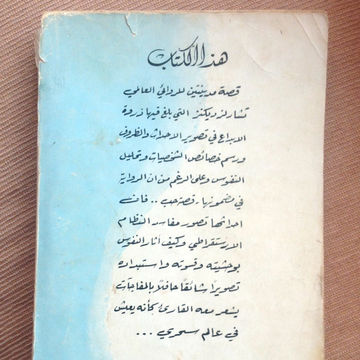 هذا الكتاب
قصة مدينتين للروائي العالمي
تشارلز ديكنز التي بلغ فيها ذروة
الابداع في تصوير الاحداث والظروف
ورسم خصائص الشخصيات وتحليل
النفوس وعلى الرغم من ان الرواية
في مضمونها، قصة حب .. فان
احداثها تصور مفاسد النظام
الارستقراطي وكيف أثار النفوس
بوحشيته وقسوته واستبداده
تصويرا شائقا حافلا بالمفاجآت
يشعر معه القارئ كأنه يعيش
في عالم سحري ...